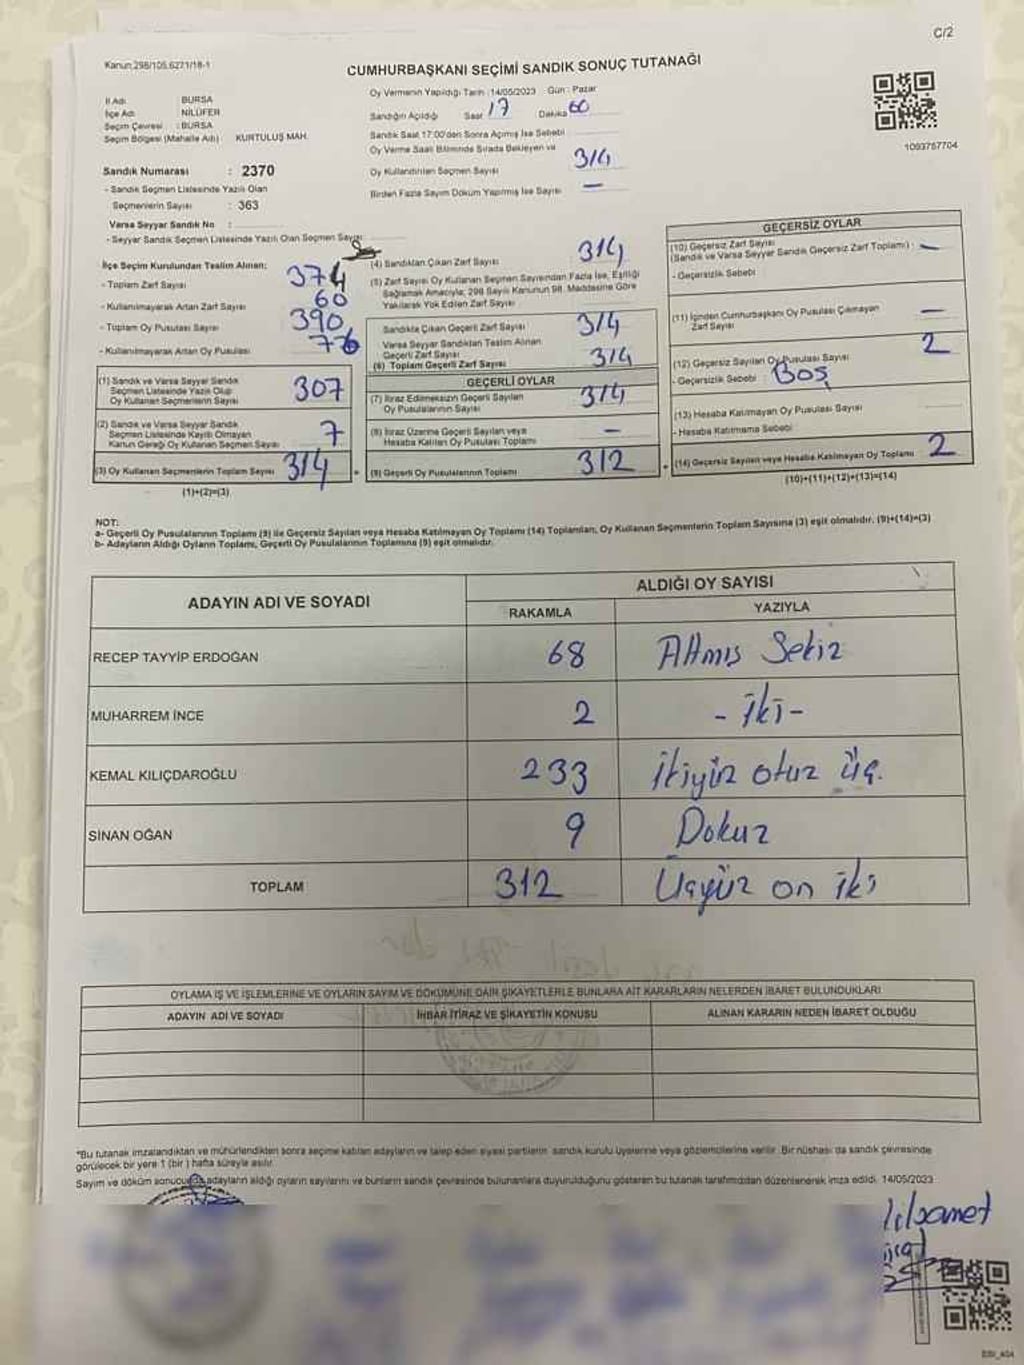 C/2
Kanun:298/105,6271/18-1
CUMHURBAŞKANI SEÇİMİ SANDIK SONUÇ TUTANAĞI
İl Adı BURSA
İlçe Adı NİLÜFER
Seçim Çevresi : BURSA
Seçim Bölgesi (Mahalle Adı) KURTULUŞ MAH.
Sandık Numarası : 2370
- Sandık Seçmen Listesinde Yazılı Olan
Seçmenlerin Sayısı : 363
Varsa Seyyar Sandık No :
- Seyyar Sandık Seçmen Listesinde Yazılı Olan Seçmen Sayısı
Oy Vermenin Yapıldığı Tarih :14/05/2023 Gün : Pazar
Sandığın Açıldığı Saat 17 Dakika 00
Sandık Saat 17:00'den Sonra Açılmış İse Sebebi
Oy Verme Saati Bitiminde Sırada Bekleyen ve
Oy Kullandırılan Seçmen Sayısı 314
Birden Fazla Sayım Döküm Yapılmış İse Sayısı —
1093767704
İlçe Seçim Kurulundan Teslim Alınan;
- Toplam Zarf Sayısı 374
- Kullanılmayarak Artan Zarf Sayısı 60
- Toplam Oy Pusulası Sayısı 390
- Kullanılmayarak Artan Oy Pusulası
(1) Sandık ve Varsa Seyyar Sandık
Seçmen Listesinde Yazılı Olup
Oy Kullanan Seçmenlerin Sayısı 307
(2) Sandık ve Varsa Seyyar Sandık
Seçmen Listesinde Kayıtlı Olmayan
Kanun Gereği Oy Kullanan Seçmen Sayısı 7
(3) Oy Kullanan Seçmenlerin Toplam Sayısı 314
(1)+(2)=(3)
(4) Sandıktan Çıkan Zarf Sayısı 314
(5) Zarf Sayısı Oy Kullanan Seçmen Sayısından Fazla İse, Eşitliği
Sağlamak Amacıyla; 298 Sayılı Kanunun 98. Maddesine Göre
Yakılarak Yok Edilen Zarf Sayısı
Sandıkta Çıkan Geçerli Zarf Sayısı 314
Varsa Seyyar Sandıktan Teslim Alınan
Geçerli Zarf Sayısı
(6) Toplam Geçerli Zarf Sayısı 314
GEÇERLİ OYLAR
(7) İtiraz Edilmeksizin Geçerli Sayılan
Oy Pusulalarının Sayısı 314
(8) İtiraz Üzerine Geçerli Sayılan veya
Hesaba Katılan Oy Pusulası Toplamı —
(9) Geçerli Oy Pusulalarının Toplamı 312
GEÇERSİZ OYLAR
(10) Geçersiz Zarf Sayısı
(Sandık ve Varsa Seyyar Sandık Geçersiz Zarf Toplamı) : —
- Geçersizlik Sebebi
(11) İçinden Cumhurbaşkanı Oy Pusulası Çıkmayan
Zarf Sayısı —
(12) Geçersiz Sayılan Oy Pusulası Sayısı 2
- Geçersizlik Sebebi : BOŞ
(13) Hesaba Katılmayan Oy Pusulası Sayısı
- Hesaba Katılmama Sebebi
(14) Geçersiz Sayılan veya Hesaba Katılmayan Oy Toplamı 2
(10)+(11)+(12)+(13)=(14)
NOT:
a- Geçerli Oy Pusulalarının Toplamı (9) ile Geçersiz Sayılan veya Hesaba Katılmayan Oy Toplamı (14) Toplamları, Oy Kullanan Seçmenlerin Toplam Sayısına (3) eşit olmalıdır. (9)+(14)=(3)
b- Adayların Aldığı Oyların Toplamı, Geçerli Oy Pusulalarının Toplamına (9) eşit olmalıdır.
ADAYIN ADI VE SOYADI ALDIĞI OY SAYISI
RAKAMLA YAZIYLA
RECEP TAYYİP ERDOĞAN 68 Altmış Sekiz
MUHARREM İNCE 2 - İki -
KEMAL KILIÇDAROĞLU 233 İkiyüz otuz üç.
SİNAN OĞAN 9 Dokuz
TOPLAM 312 Üçyüz on iki
OYLAMA İŞ VE İŞLEMLERİNE VE OYLARIN SAYIM VE DÖKÜMÜNE DAİR ŞİKAYETLERLE BUNLARA AİT KARARLARIN NELERDEN İBARET BULUNDUKLARI
ADAYIN ADI VE SOYADI İHBAR İTİRAZ VE ŞİKAYETİN KONUSU ALINAN KARARIN NEDEN İBARET OLDUĞU
*Bu tutanak imzalandıktan ve mühürlendikten sonra seçime katılan adayların ve talep eden siyasi partilerin sandık kurulu üyelerine veya gözlemcilerine verilir. Bir nüshası da sandık çevresinde
görülecek bir yere 1 (bir) hafta süreyle asılır.
Sayım ve döküm sonucunda adayların aldığı oyların sayılarını ve bunların sandık çevresinde bulunanlara duyurulduğunu gösteren bu tutanak tarafımızdan düzenlenerek imza edildi. 14/05/2023